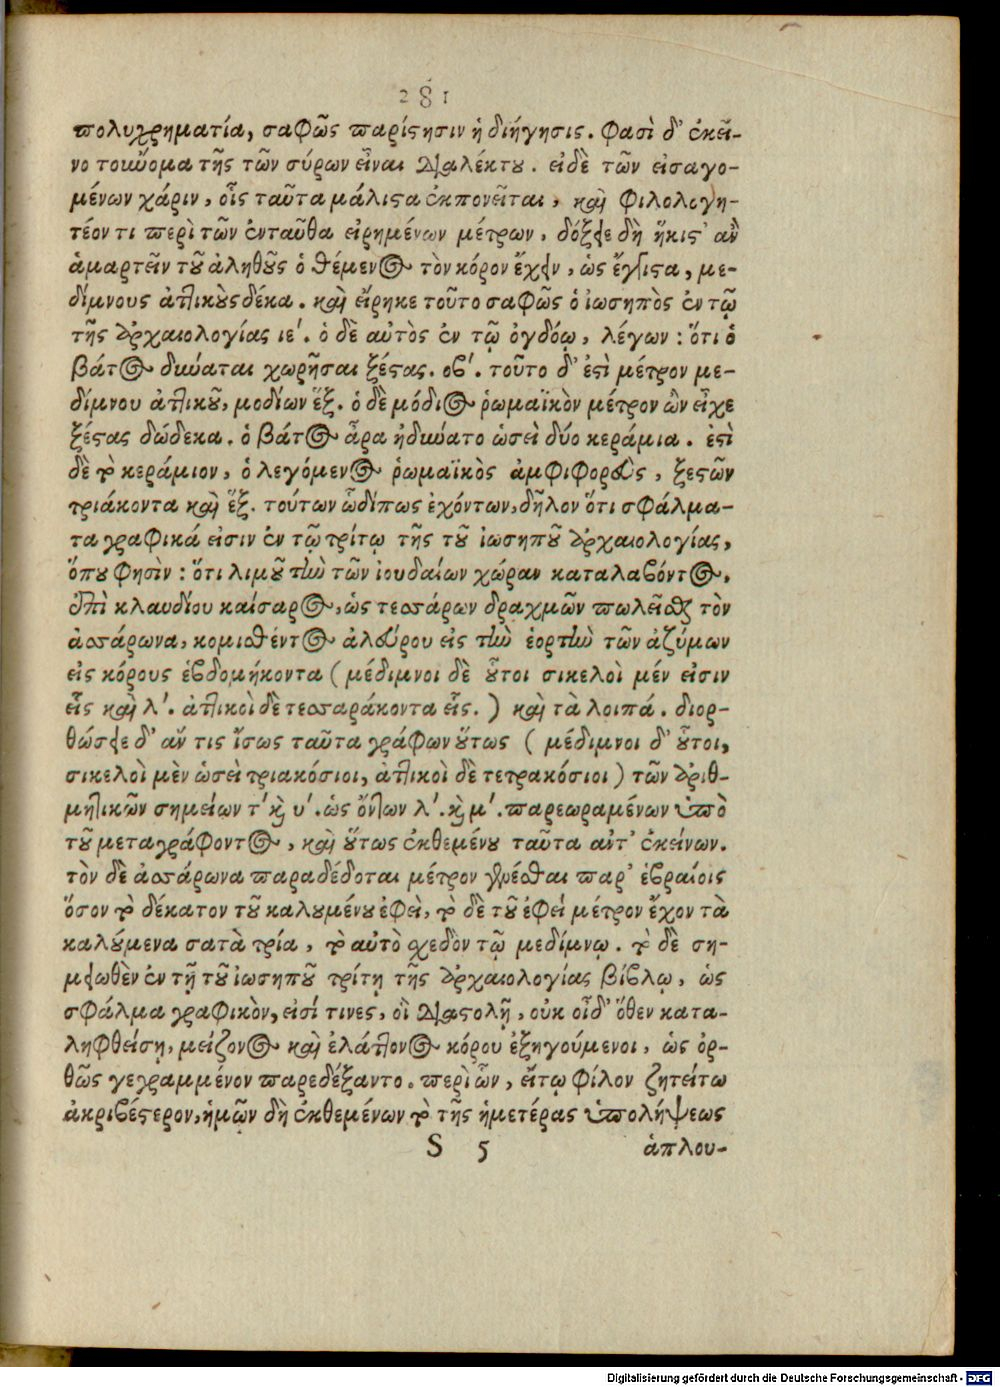 281
πολυχρηματία, σαφῶς παρίστησιν ἡ διήγησις. φασὶ δ' ἐκεῖ-
νο τοὔνομα τῆς τῶν σύρων εἶναι διαλέκτου. εἰ δὲ τῶν εἰσαγο-
μένων χάριν, οἷς ταῦτα μάλιστα ἐκπονεῖται, καὶ φιλολογη-
τέον τι περὶ τῶν ἐνταῦθα εἰρημένων μέτρων, δόξειε δὴ ἥκιστ' ἂν
ἁμαρτεῖν τοῦ ἀληθοῦς ὁ θέμενος τὸν κόρον ἔχειν, ὡς ἔγγιστα, με-
δίμνους ἀττικοὺς δέκα. καὶ εἴρηκε τοῦτο σαφῶς ὁ ἰωσηπὸς ἐν τῷ
τῆς ἀρχαιολογίας ιε'. ὁ δὲ αὐτὸς ἐν τῷ ὀγδόῳ, λέγων: ὅτι ὁ
βάτος δύναται χωρῆσαι ξέστας. οβ'. τοῦτο δ' ἐστὶ μέτρον με-
δίμνου ἀττικοῦ, μοδίων ἕξ. ὁ δὲ μόδιος ῥωμαϊκὸν μέτρον ὢν εἶχε
ξέστας δώδεκα. ὁ βάτος ἄρα ἠδύνατο ὡσεὶ δύο κεράμια. ἐστὶ
δὲ τὸ κεράμιον, ὁ λεγόμενος ῥωμαϊκὸς ἀμφιφορεὺς, ξεστῶν
τριάκοντα καὶ ἕξ. τούτων ὧδί πως ἐχόντων, δῆλον ὅτι σφάλμα-
τα γραφικά εἰσιν ἐν τῷ τρίτῳ τῆς τοῦ ἰωσηποῦ ἀρχαιολογίας,
ὅπου φησὶν: ὅτι λιμοῦ τὴν τῶν ἰουδαίων χώραν καταλαβόντος,
ἐπὶ κλαυδίου καίσαρος, ὡς τεσσάρων δραχμῶν πωλεῖσθαι τὸν
ἀσσάρωνα, κομισθέντος ἀλεύρου εἰς τὴν ἑορτὴν τῶν ἀζύμων
εἰς κόρους ἑβδομήκοντα (μέδιμνοι δὲ οὗτοι σικελοὶ μέν εἰσιν
εἷς καὶ λ'. ἀττικοὶ δὲ τεσσαράκοντα εἷς.) καὶ τὰ λοιπά. διορ-
θώσειε δ' ἄν τις ἴσως ταῦτα γράφων οὕτως (μέδιμνοι δ' οὗτοι,
σικελοὶ μὲν ὡσεὶ τριακόσιοι, ἀττικοὶ δὲ τετρακόσιοι) τῶν ἀριθ-
μητικῶν σημείων τ' καὶ υ'. ὡς ὄντων λ'. καὶ μ'. παρεωραμένων ὑπὸ
τοῦ μεταγράφοντος, καὶ οὕτως ἐκθεμένου ταῦτα ἀντ' ἐκείνων.
τὸν δὲ ἀσσάρωνα παραδέδοται μέτρον γενέσθαι παρ' ἑβραίοις
ὅσον τὸ δέκατον τοῦ καλουμένου ἐφεὶ, τὸ δὲ τοῦ ἐφεὶ μέτρον ἔχον τὰ
καλούμενα σατὰ τρία, τὸ αὐτὸ σχεδὸν τῷ μεδίμνῳ. τὸ δὲ ση-
μειωθὲν ἐν τῇ τοῦ ἰωσηποῦ τρίτῃ τῆς ἀρχαιολογίας βίβλῳ, ὡς
σφάλμα γραφικὸν, εἰσί τινες, οἳ διαστολῇ, οὐκ οἶδ' ὅθεν κατα-
ληφθείσῃ, μείζονος καὶ ἐλάττονος κόρου ἐξηγούμενοι, ὡς ὀρ-
θῶς γεγραμμένον παρεδέξαντο. περὶ ὧν, εἴτῳ φίλον ζητείτω
ἀκριβέστερον, ἡμῶν δὴ ἐκθεμένων τὸ τῆς ἡμετέρας ὑπολήψεως
S 5 ἁπλου-
Digitalisierung gefördert durch die Deutsche Forschungsgemeinschaft - DFG